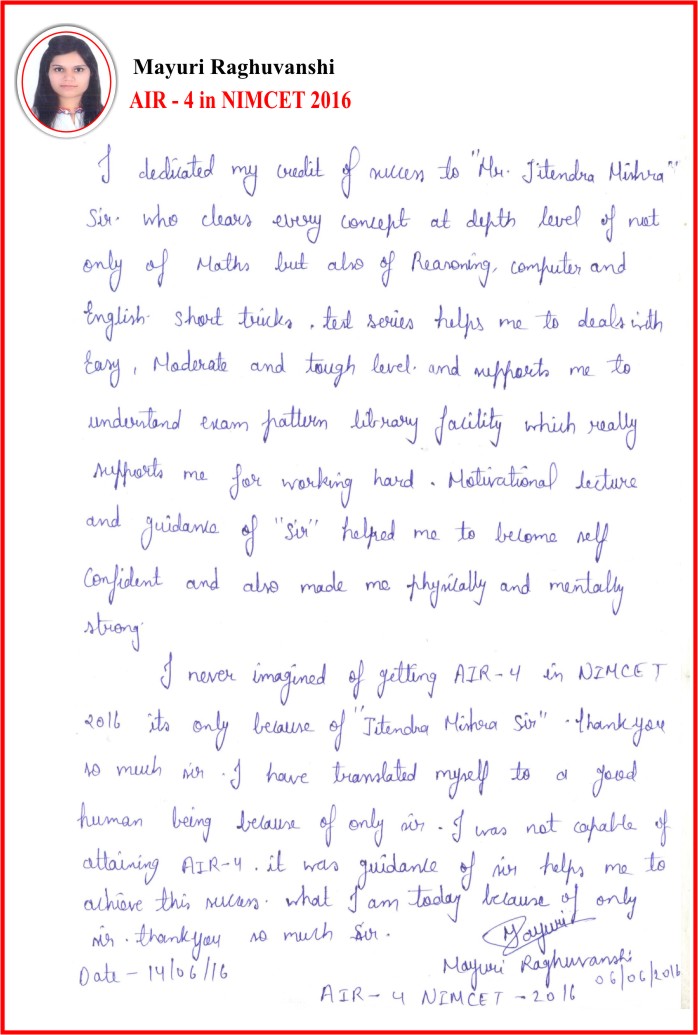 Mayuri Raghuvanshi
AIR - 4 in NIMCET 2016
I dedicated my credit of success to "Mr. Jitendra Mishra"
Sir. who clears every concept at depth level of not
only of Maths but also of Reasoning, computer and
English. Short tricks, test series helps me to deals with
Easy, Moderate and tough level. and supports me to
understand exam pattern library facility which really
supports me for working hard. Motivational lecture
and guidance of "Sir" helped me to become self
Confident and also made me physically and mentally
strong.
I never imagined of getting AIR-4 in NIMCET
2016 its only because of "Jitendra Mishra Sir". thankyou
so much sir. I have translated myself to a good
human being because of only sir. I was not capable of
attaining AIR-4. it was guidance of sir helps me to
achieve this success. what I am today because of only
sir. thankyou so much Sir.
Mayuri
Date - 14/06/16
Mayuri Raghuvanshi
06/06/2016
AIR-4 NIMCET-2016